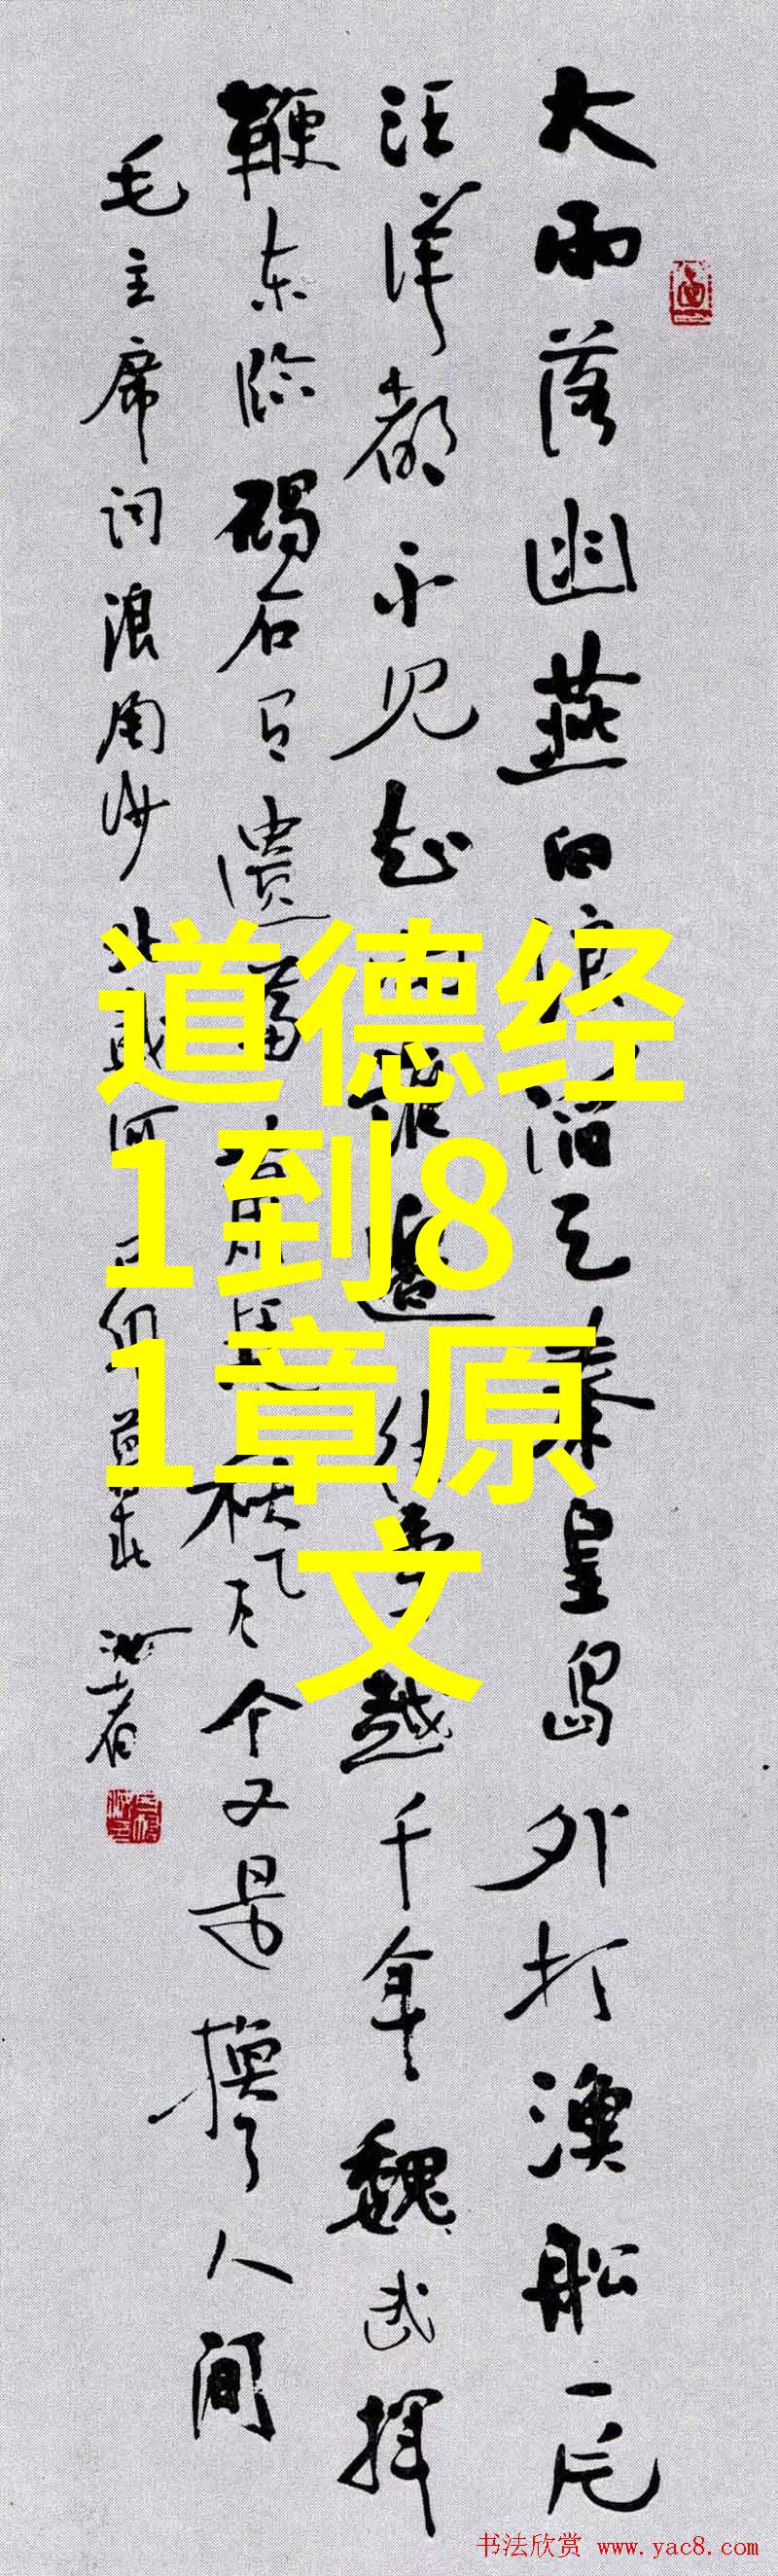 大雨落幽燕白浪滔天秦皇岛外打渔船一片
汪洋都不见知向谁边往事越千年魏武挥
鞭东临碣石有遗篇萧瑟秋风今又是换了人间
毛主席词浪淘沙北戴河
道德经
1到8
1章原
文
书法欣赏 www.yac8.com